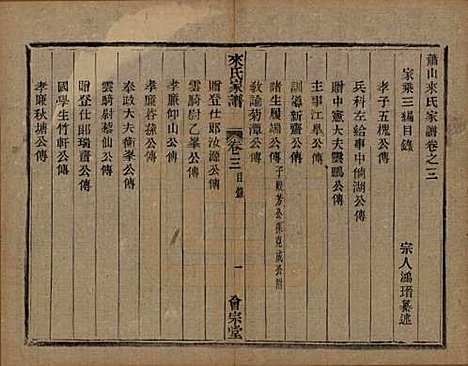 蕭山來氏家譜卷之三
家乘三編目錄
宗人鴻瑨纂述
孝子五槐公傳
兵科左給事中倘湖公傳
贈中憲大夫雲鵬公傳
主事江臯公傳
訓導新齋公傳
諸生履瑞公傳 子殿芳公孫克成公附
教諭菊潭公傳
來氏家譜
卷三 目錄
一
會宗堂
贈登仕郎汝源公傳
雲騎尉乙峯公傳
孝廉仰山公傳
孝廉梧掖公傳
奉政大夫衛峯公傳
雲騎尉藝仙公傳
贈登仕郎瑞齋公傳
國學生竹軒公傳
孝廉秋塘公傳